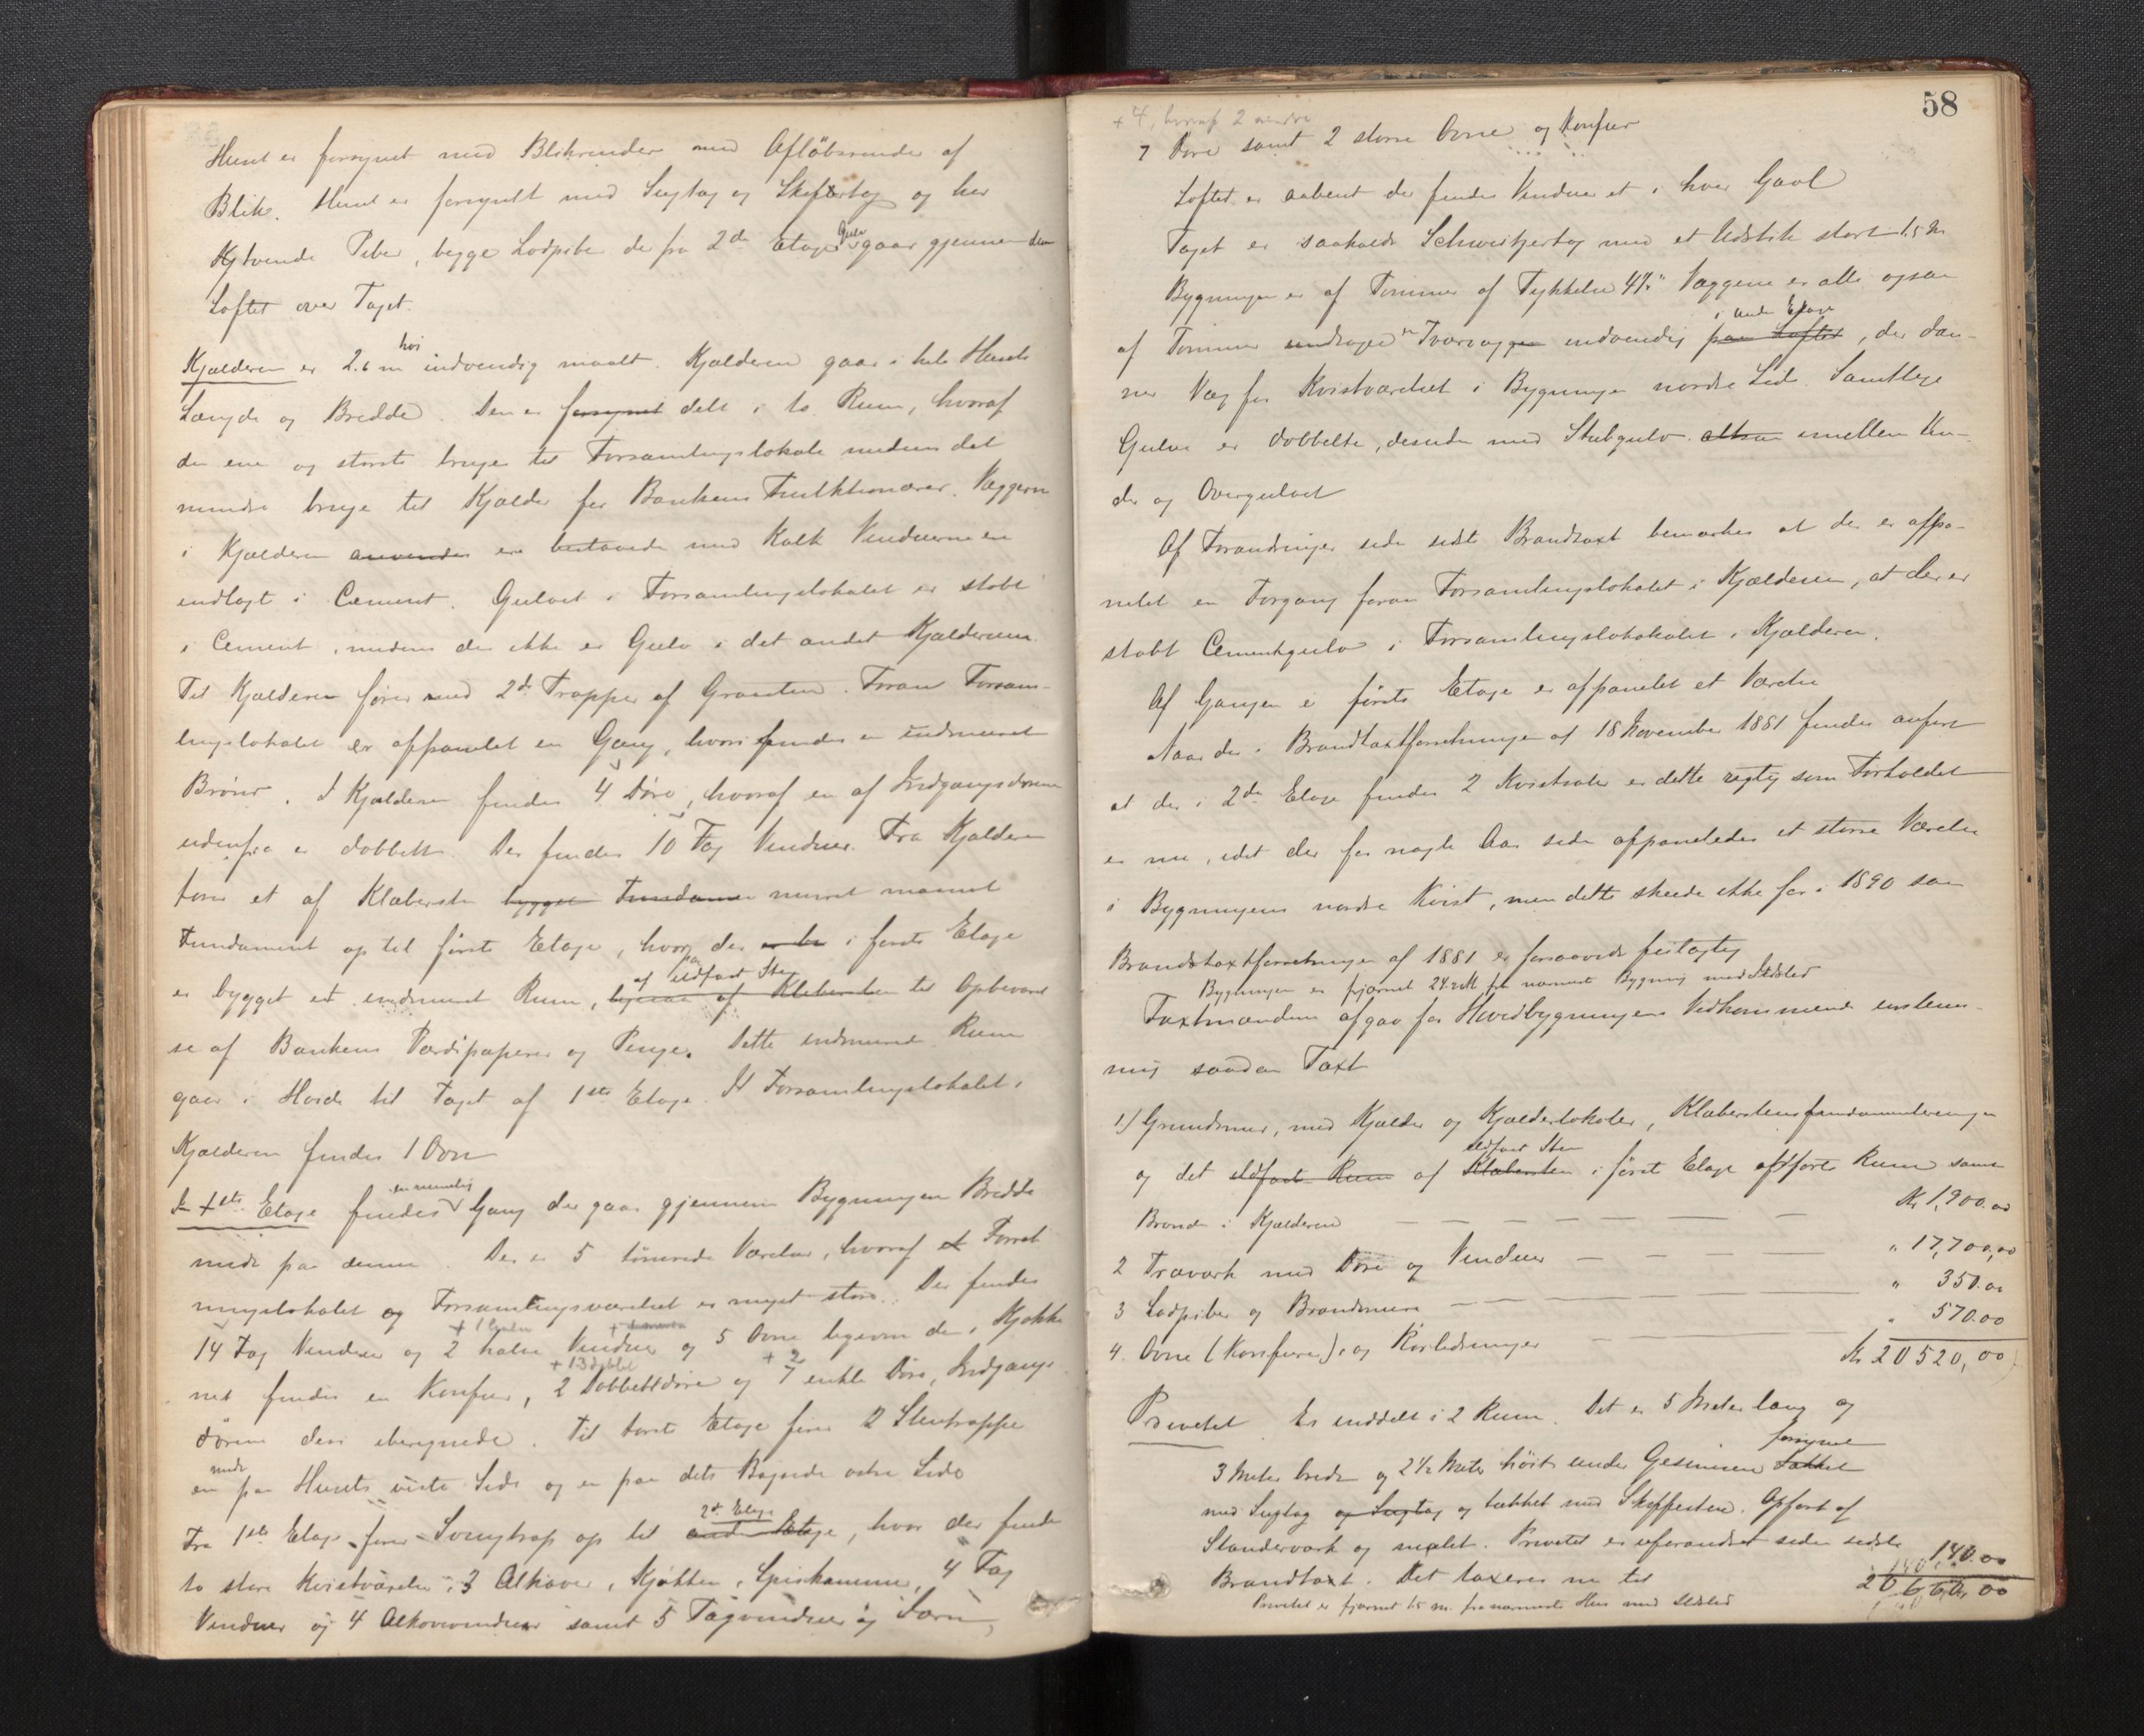 Huset er forsynet med Blikrender med Afløbsrender af
Blik. Huset er forsynet med Sugtag og Skifertag og har
tvende Piber, begge Lodpiber der fra 2den Etages Gulv gaar gjennem
Loftet over Taget.
Kjælderen er 2.6 m høi indvendig maalt. Kjælderen gaar i hele Husets
Længde og Bredde. Den er forsynet delt i to Rum, hvoraf
den ene og største bruges til Forsamlingslokale medens det
mindre bruges til Kjælder for Bankens Funktionærer. Væggene
i Kjælderen anvendes ere bestaaende med Kalk Vinduerne ere
indlagt i Cement. Gulvet i Forsamlingslokalet er støbt
i Cement, medens der ikke er Gulv i det andet Kjælderrum.
Til Kjælderen fører ned 2de Trapper af Granitsten. Foran Forsam-
lingslokalet er afpanelet en Gang, hvori findes en indmuret
Brønd. I Kjælderen findes 4 Døre, hvoraf en af Indgangsdørene
udenfra er dobbelt. Der findes 10 Fag Vinduer. Fra Kjælderen
fører et af Klæbersten bygget Fundament muret massivt
Fundament op til første Etage, hvorpaa der i første Etage
er bygget et indmuret Rum, af ildfast Sten ligesaa af Klæbersten til Opbevarel-
se af Bankens Værdipapirer og Penge. Dette indmurede Rum
gaar i Høide til Taget af 1ste Etage. I Forsamlingslokalet i
Kjælderen findes 1 Ovn
I 1ste Etage findes en rummelig Gang der gaar gjennem Bygningens Bredde
midt paa denne. Der er 5 tømrede Værelser, hvoraf et Forret-
ningslokalet og Forsamlingsværelset er meget store. Der findes
14 Fag Vinduer og 2 halve Vinduer og 5 Ovne ligesom der i Kjøkke-
+ 13 dobbelt + 2
net findes en Komfur, 2 Dobbeltdøre og 7 enkle Døre, Indgangs-
dørene deri iberegnede. Til første Etage fører 2 Stentrapper
en midt paa Husets vestre Side og en paa dets Bagside østre Side
Fra 1ste Etage fører Svingtrap op til anden Etage 2d Etage, hvor der findes
to store Kvistværelser, 3 Alkover, Kjøkken, Spiskammer, 4 Fag
Vinduer og 4 Alkovevinduer samt 5 Tagvinduer og
58
+ 4, hvoraf 2 mindre
7 Døre samt 2 større Ovne og Komfur
Loftet er aabent der findes Vinduer et i hver Gavl
Taget er saakaldt Schweitzertag med et Udstik stort 1.5 M
Bygningen er af Tømmer af Tykkelse 4½" Væggene er alle ogsaa
af Tømmer undtagen en Tværvæggen indvendig paa Loftet i anden Etage, der dan-
ner Væg for Kvistværelset i Bygningens nordre Side. Samtlige
Gulve er dobbelte, desuden med Stubgulv altsaa imellem Un-
der og Overgulvet
Af Forandringer siden sidste Brandtaxt bemærkes at der er afpa-
nelet en Forgang foran Forsamlingslokalet i Kjælderen, at der er
støbt Cementgulv i Forsamlingslokalet i Kjælderen.
Af Gangen i første Etage er afpanelet et Værelse
Naar der i Brandtaxtforretningen af 18 November 1881 findes anført
at der i 2den Etage findes 2 Kvistsaler er dette rigtig som Forholdet
er nu, idet der for nogle Aar siden afpaneledes et større Værelse
i Bygningens nordre Kvist, men dette skeede ikke før i 1890 saa
Brandtaxtforretningen af 1881 er forsaavidt feilagtig
Bygningen er fjernet 24.2 M fra nærmeste Bygning med Ildsted
Taxtmændene afgav for Hovedbygningens Vedkommende enstem-
mig saadan Taxt
1) Grundmur, med Kjælder og Kjælderlokaler, Klæberstensfundamenteringen
og det ildfast Rum af Klæbersten ildfast Sten i først Etage opførte Rum samt
Brønd i Kjælderen — — — — — Kr 1,900.00
2 Træværk med Døre og Vinduer — — — — " 17,700,00
3 Lodpiber og Brandmure — — — — " 350.00
4. Ovne (Komfurer), og Rørledninger — — " 570.00
Kr 20520,00
Privetet Er inddelt i 2 Rum. Det er 5 Meter lang og
3 Meter bredt og 2½ Meter høit under Gesimsen takket forsynet
med Sugtag og Sugtag og tækket med Skiffersten. Opført af
Standerværk og malet. Privetet er uforandret siden sidste
Brandtaxt. Det taxeres nu til 140.00
Privetet er fjærnet 15 m. fra nærmeste Hus med Ildsted
20660,00